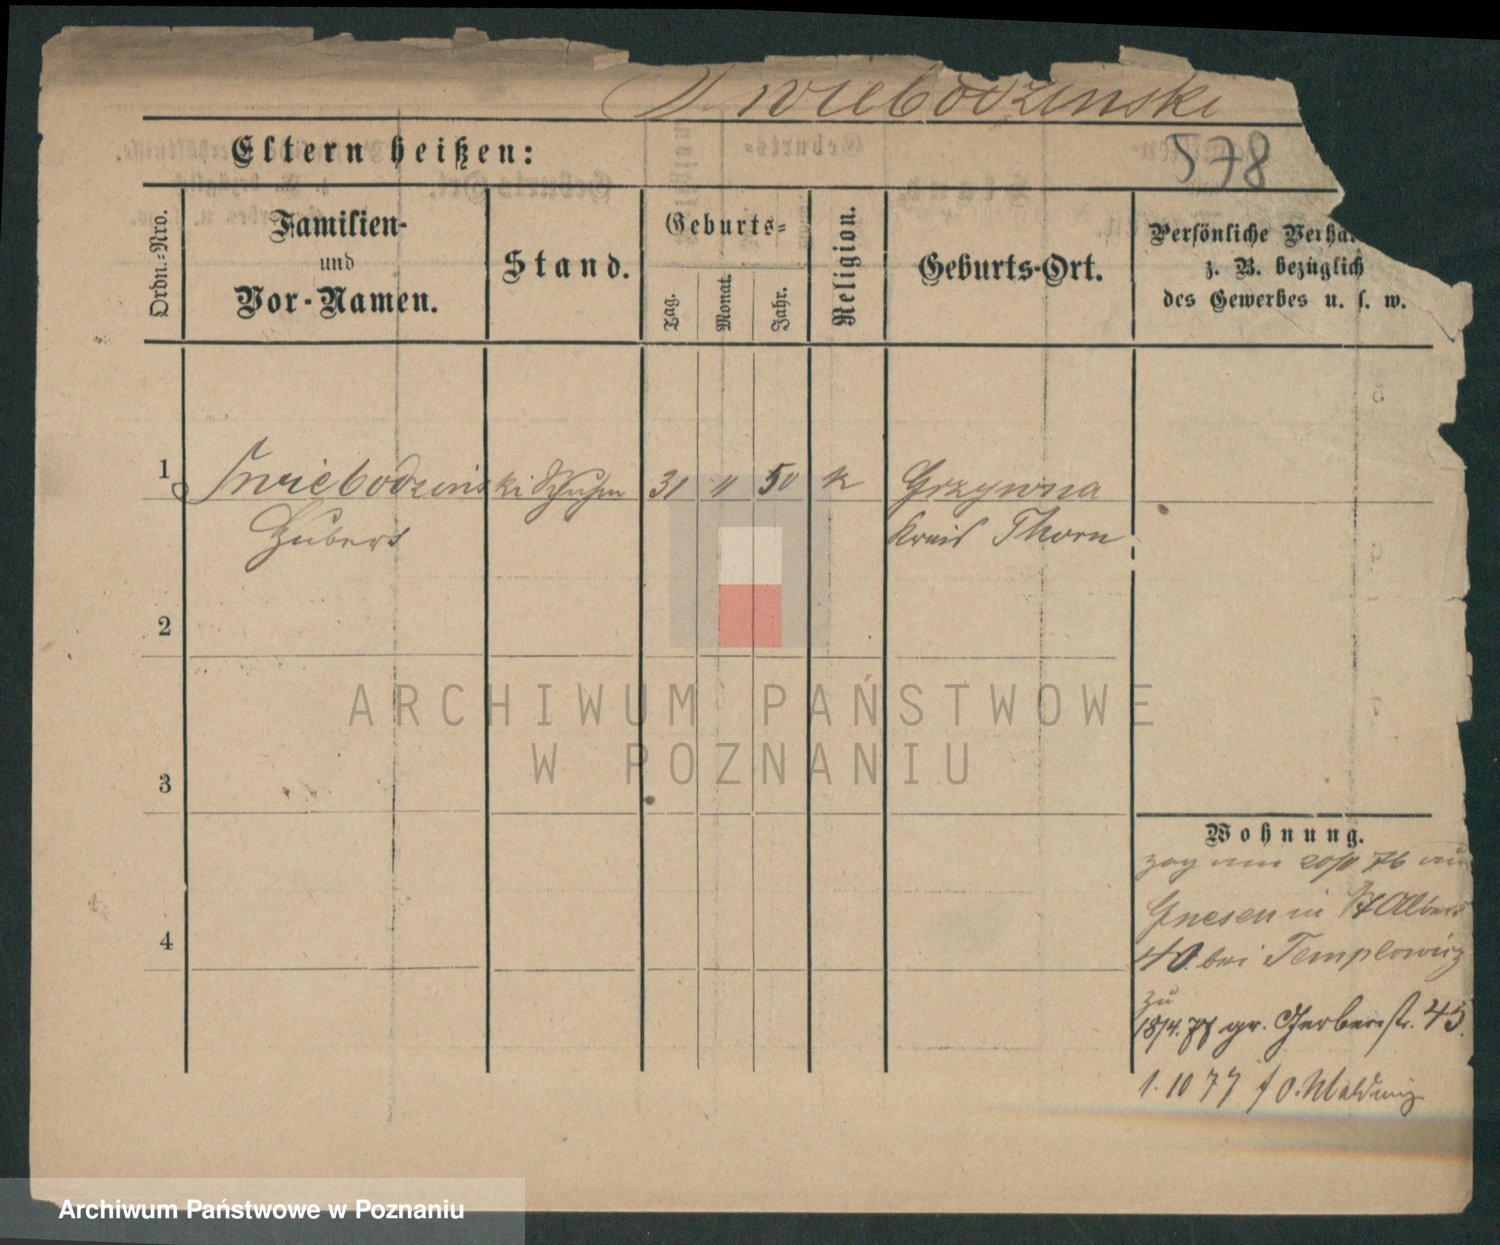 Swiebodzinski
578
Eltern heißen:
Ordn.-Nro.
Familien-
und
Vor-Namen.
Stand.
Geburts-
Tag.
Monat.
Jahr.
Religion.
Geburts-Ort.
Persönliche Verhä
z. B. bezüglich
des Gewerbes u. s. w.
1
Swiebodzinski Schuhm 31 11 50 k Grzywna
Hubert Kreis Thorn
2
ARCHIWUM PAŃSTWOWE
W POZNANIU
3
Wohnung.
zog am 20/11 76 aus
Gnesen in St Albert
40. bei Templowicz
zu
18/4. 77 gr. Gerberstr. 45.
1. 10 77
4
Archiwum Państwowe w Poznaniu